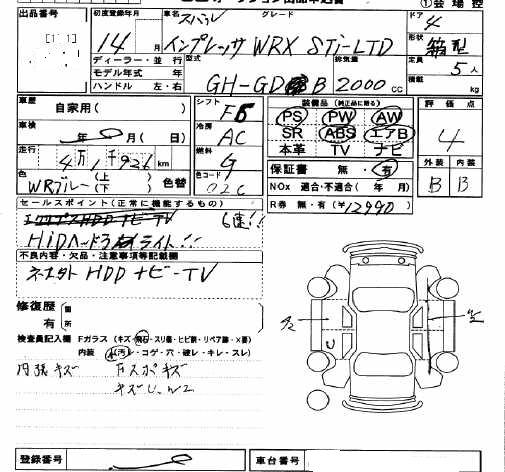 ①会場控
出品番号 初度登録年月 車名 スバル グレード ドア 4
[1 1] 14 月 インプレッサ WRX STi-LTD 形状 箱型
ディーラー・並行 型式 排気量 定員 5人
モデル年式 年 GH-GD B 2000 cc 積載
ハンドル 左・右 kg
車歴 自家用( ) シフト F6 装備品(純正品に限る) 評価点
車検 年 月(日) 冷房 AC PS PW AW 4
SR ABS エアB
走行 4万1千926km 燃料 G 本革 TV ナビ 外装 内装
保証書 無・有 B B
色 WRブルー(上)(下) 色替 色コード 02C NOx 適合・不適合( 年 月)
セールスポイント(正常に機能するもの) R券 無・有(¥12990)
6速!!
HiDヘッドライト!!
不良内容・欠品・注意事項等記載欄
ネオ外 HDDナビ-TV
修復歴 無
有 所
検査員記入欄 Fガラス(キズ・飛石・スリ傷・ヒビ割・リペア跡・X要)
内装 (汚レ・コゲ・穴・破レ・キレ・スレ)
内張キズ Fスポキズ
キズU、W2
A2
U
登録番号 車台番号